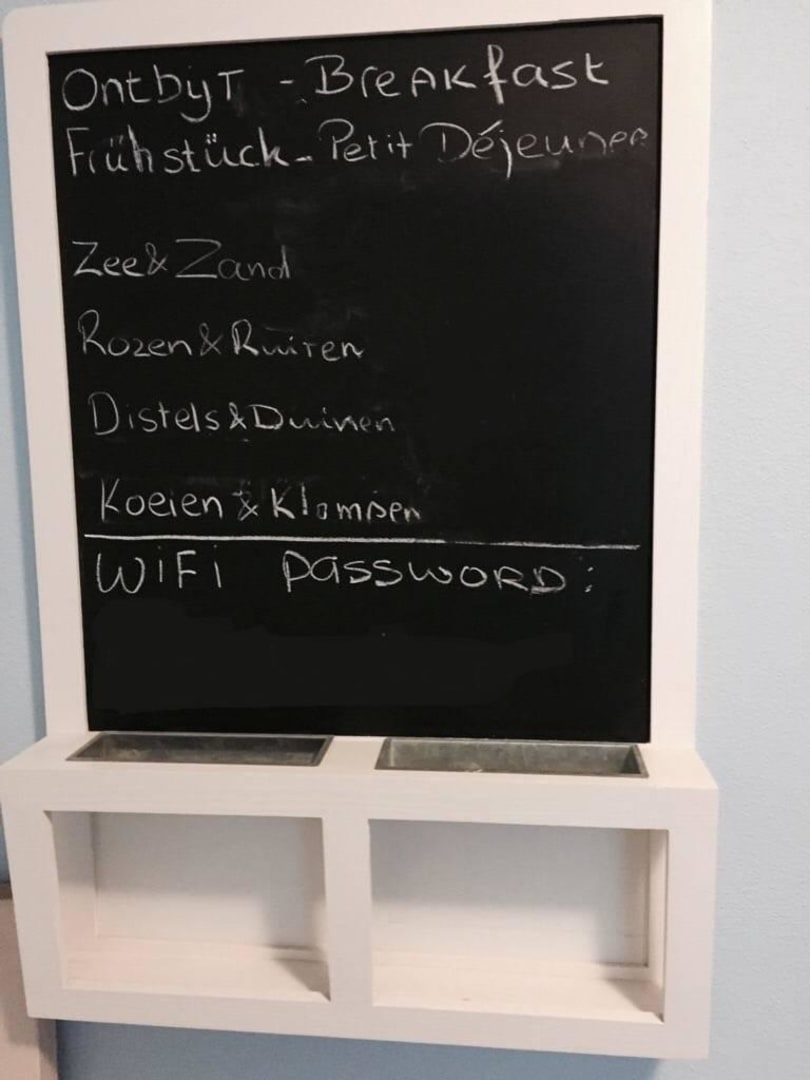 OntbijT - BreAKfast
Frühstück - Petit Déjeuner
Zee & Zand
Rozen & RuiTen
Distels & Duinen
Koeien & Klompen
WiFi passwORD: